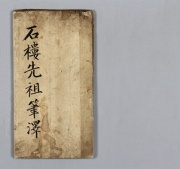 石樓先祖筆澤